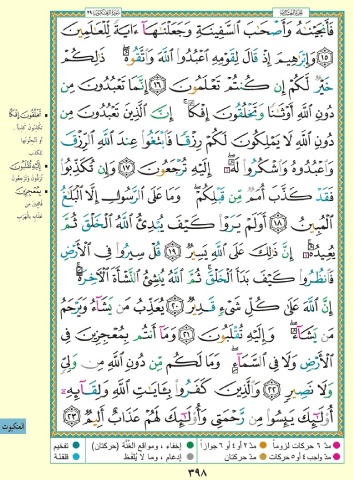 فَأَنجَيْنَٰهُ وَأَصْحَٰبَ ٱلسَّفِينَةِ وَجَعَلْنَٰهَآ ءَايَةً لِّلْعَٰلَمِينَ
١٥ وَإِبْرَٰهِيمَ إِذْ قَالَ لِقَوْمِهِ ٱعْبُدُوا۟ ٱللَّهَ وَٱتَّقُوهُ ذَٰلِكُمْ
خَيْرٌ لَّكُمْ إِن كُنتُمْ تَعْلَمُونَ ١٦ إِنَّمَا تَعْبُدُونَ مِن
دُونِ ٱللَّهِ أَوْثَٰنًا وَتَخْلُقُونَ إِفْكًا إِنَّ ٱلَّذِينَ تَعْبُدُونَ مِن
دُونِ ٱللَّهِ لَا يَمْلِكُونَ لَكُمْ رِزْقًا فَٱبْتَغُوا۟ عِندَ ٱللَّهِ ٱلرِّزْقَ
وَٱعْبُدُوهُ وَٱشْكُرُوا۟ لَهُۥٓ إِلَيْهِ تُرْجَعُونَ ١٧ وَإِن تُكَذِّبُوا۟
فَقَدْ كَذَّبَ أُمَمٌ مِّن قَبْلِكُمْ وَمَا عَلَى ٱلرَّسُولِ إِلَّا ٱلْبَلَٰغُ
ٱلْمُبِينُ ١٨ أَوَلَمْ يَرَوْا۟ كَيْفَ يُبْدِئُ ٱللَّهُ ٱلْخَلْقَ ثُمَّ
يُعِيدُهُۥٓ إِنَّ ذَٰلِكَ عَلَى ٱللَّهِ يَسِيرٌ ١٩ قُلْ سِيرُوا۟ فِى ٱلْأَرْضِ
فَٱنظُرُوا۟ كَيْفَ بَدَأَ ٱلْخَلْقَ ثُمَّ ٱللَّهُ يُنشِئُ ٱلنَّشْأَةَ ٱلْءَاخِرَةَ
إِنَّ ٱللَّهَ عَلَىٰ كُلِّ شَىْءٍ قَدِيرٌ ٢٠ يُعَذِّبُ مَن يَشَآءُ وَيَرْحَمُ
مَن يَشَآءُ وَإِلَيْهِ تُقْلَبُونَ ٢١ وَمَآ أَنتُم بِمُعْجِزِينَ فِى
ٱلْأَرْضِ وَلَا فِى ٱلسَّمَآءِ وَمَا لَكُم مِّن دُونِ ٱللَّهِ مِن وَلِىٍّ
وَلَا نَصِيرٍ ٢٢ وَٱلَّذِينَ كَفَرُوا۟ بِـَٔايَٰتِ ٱللَّهِ وَلِقَآئِهِۦٓ
أُو۟لَٰٓئِكَ يَئِسُوا۟ مِن رَّحْمَتِى وَأُو۟لَٰٓئِكَ لَهُمْ عَذَابٌ أَلِيمٌ ٢٣
تَخْلُقُونَ إِفْكًا
إِلَيْهِ تُقْلَبُونَ
بِمُعْجِزِينَ
العنكبوت
مدّ ٦ حركات لزوماً مدّ ٢ أو ٤ أو ٦ جوازاً إخفاء، ومواقع الغُنَّة (حركتان) تفخيم
مدّ واجب ٤ أو ٥ حركات مدّ حركتان إدغام، وما لا يُلفَظ قلقلة
٣٩٨